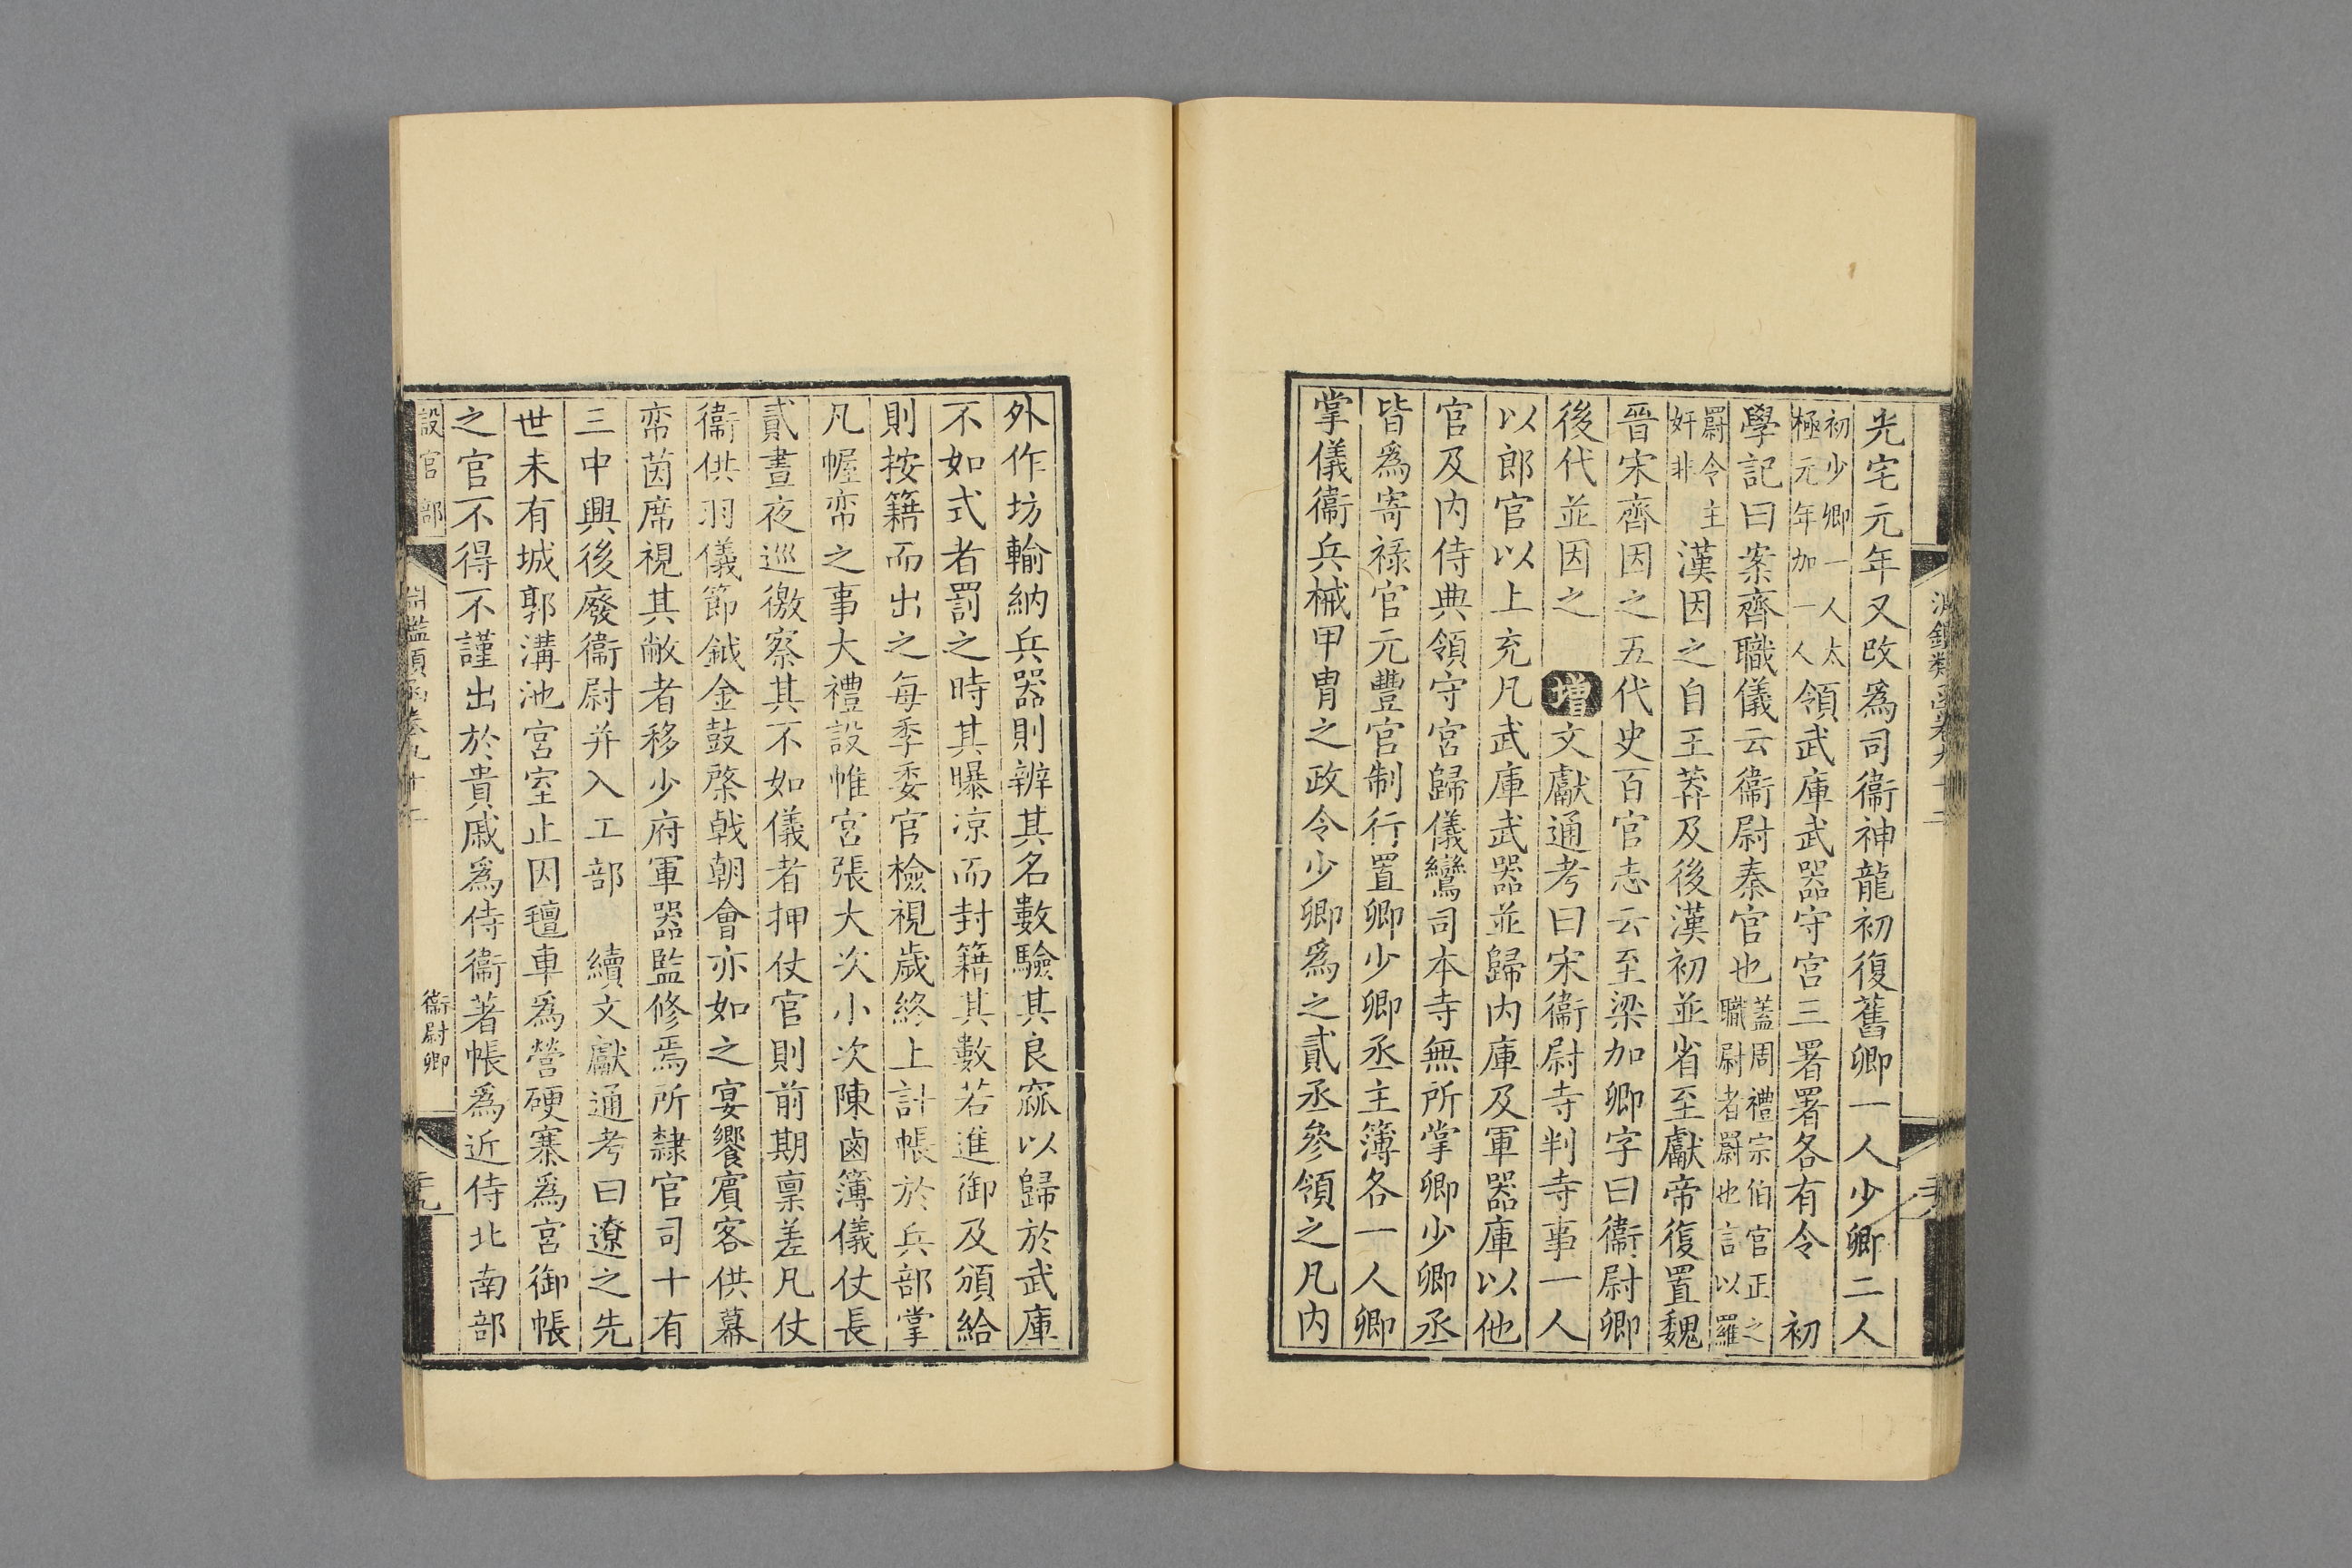 光宅元年又改爲司衞神龍初復舊卿一人少卿二人
初少卿一人太極元年加一人領武庫武器守宮三署署各有令 初
學記曰案齊職儀云衞尉秦官也蓋周禮宗伯官正之職尉者罻也言以羅
罻令主奸非漢因之自王莽及後漢初並省至獻帝復置魏
晉宋齊因之五代史百官志云至梁加卿字曰衞尉卿
後代並因之 增文獻通考曰宋衞尉寺判寺事一人
以郎官以上充凡武庫武器並歸內庫及軍器庫以他
官及內侍典領守宮歸儀鸞司本寺無所掌卿少卿丞
皆爲寄祿官元豐官制行置卿少卿丞主簿各一人卿
掌儀衞兵械甲冑之政令少卿爲之貳丞參領之凡內
外作坊輸納兵器則辨其名數驗其良窳以歸於武庫
不如式者罰之時其曝凉而封籍其數若進御及頒給
則按籍而出之每季委官檢視歲終上計帳於兵部掌
凡幄帟之事大禮設帷宮張大次小次陳鹵簿儀仗長
貳晝夜巡徼察其不如儀者押仗官則前期禀差凡仗
衞供羽儀節鉞金鼓棨戟朝會亦如之宴饗賓客供幕
帟茵席視其敝者移少府軍器監修焉所隸官司十有
三中興後廢衞尉并入工部 續文獻通考曰遼之先
世未有城郭溝池宮室止因氊車爲營硬寨爲宮御帳
之官不得不謹出於貴戚爲侍衞著帳爲近侍北南部
設官部 淵鑑類函卷九十二 衞尉卿